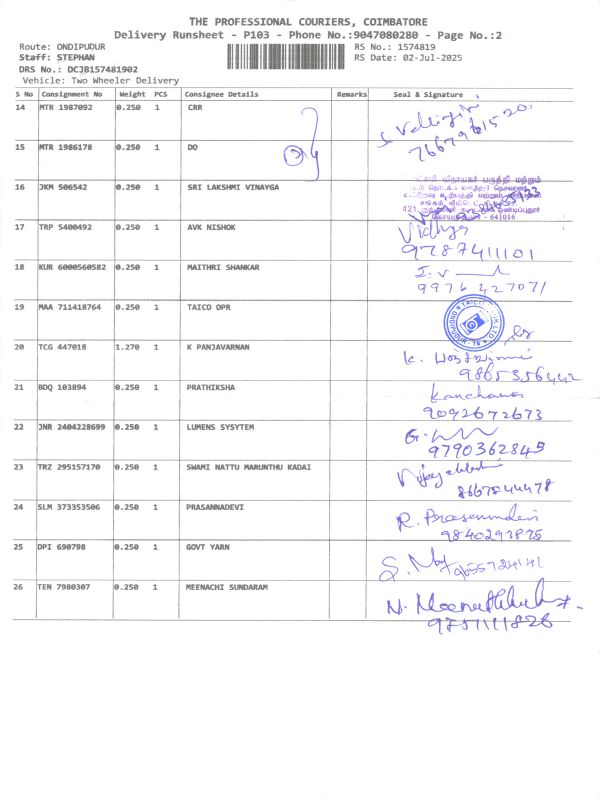 THE PROFESSIONAL COURIERS, COIMBATORE
Delivery Runsheet - P103 - Phone No.:9047080280 - Page No.:2
Route: ONDIPUDUR RS No.: 1574819
Staff: STEPHAN RS Date: 02-Jul-2025
DRS No.: DCJB157481902
Vehicle: Two Wheeler Delivery
S No Consignment No Weight PCS Consignee Details Remarks Seal & Signature
14 MTR 1987092 0.250 1 CRR
7667961520
15 MTR 1986178 0.250 1 DO
16 JKM 506542 0.250 1 SRI LAKSHMI VINAYGA
641016
17 TRP 5400492 0.250 1 AVK NISHOK Vidhya
9787411101
18 KUR 6000560582 0.250 1 MAITHRI SHANKAR
9976427071
19 MAA 711418764 0.250 1 TAICO OPR
20 TCG 447018 1.270 1 K PANJAVARNAN K.
9865356442
21 BDQ 103894 0.250 1 PRATHIKSHA Kanchana
9092672673
22 JNR 2404228699 0.250 1 LUMENS SYSYTEM
9790362845
23 TRZ 295157170 0.250 1 SWAMI NATTU MARUNTHU KADAI
8667844478
24 SLM 373353506 0.250 1 PRASANNADEVI R. Prasannadevi
9840293875
25 DPI 690798 0.250 1 GOVT YARN
9655724141
26 TEN 7980307 0.250 1 MEENACHI SUNDARAM